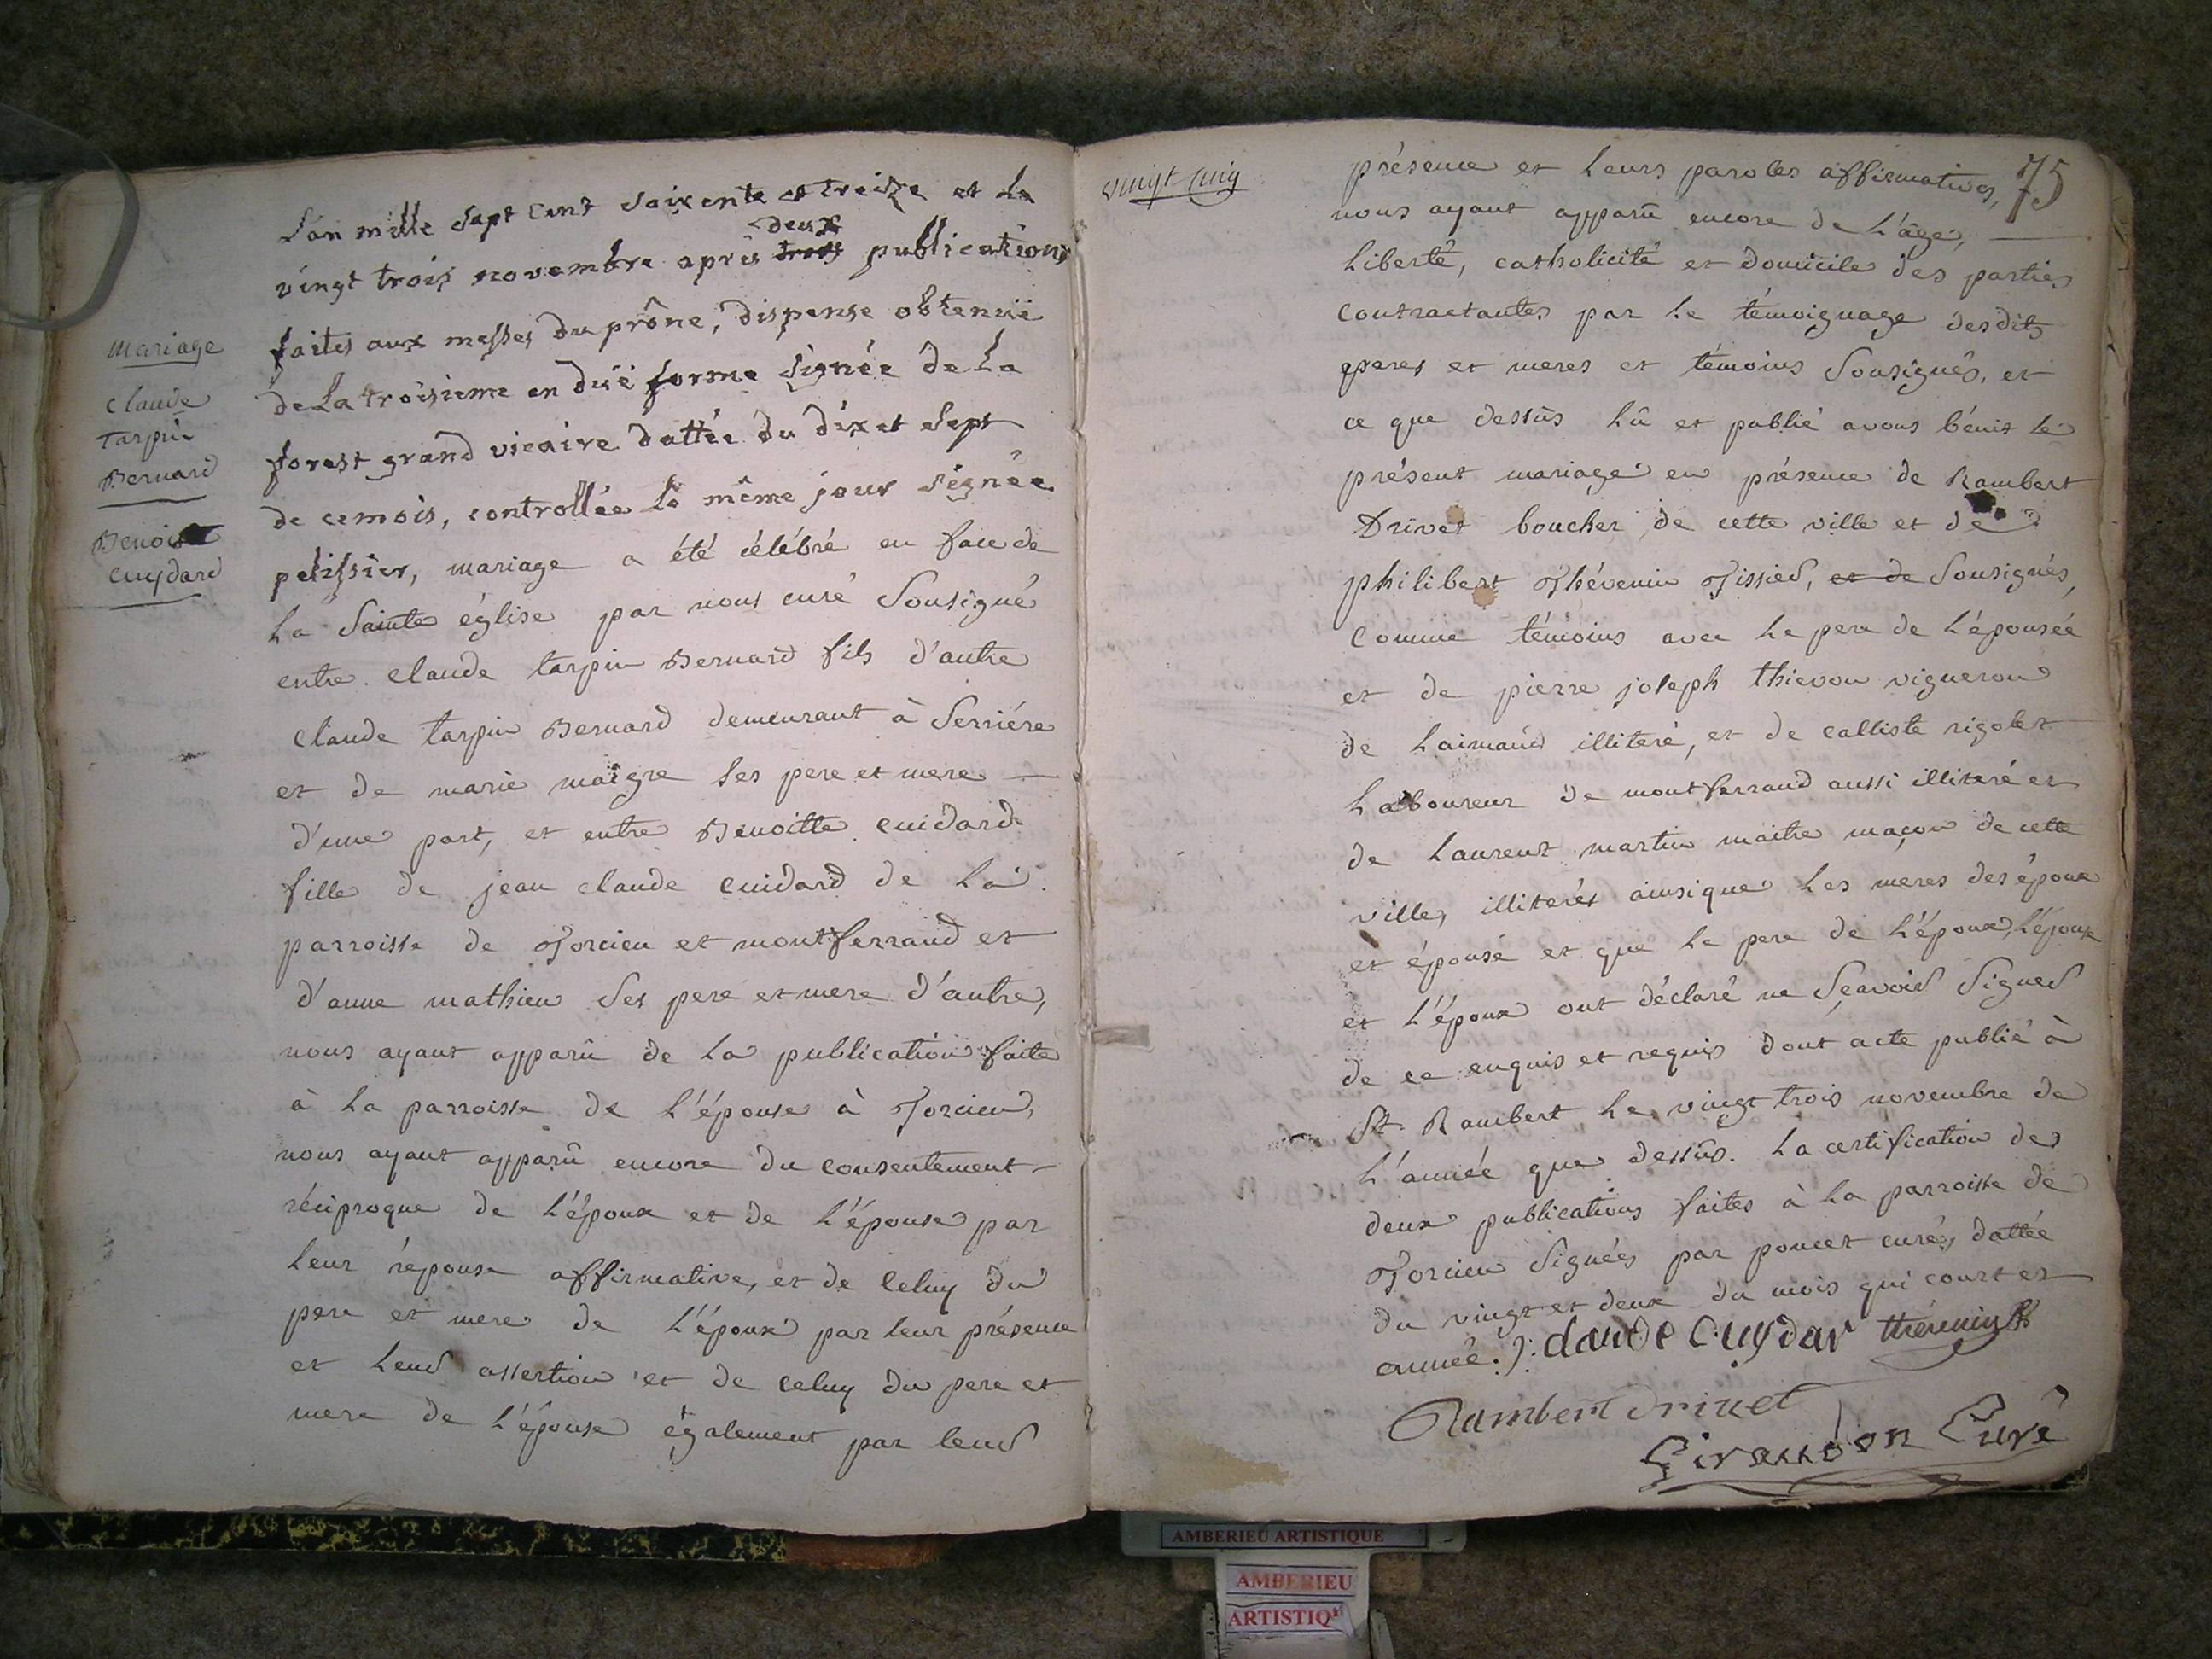 mariage
Claude
Tarpin
Bernard
Benoitte
Cuydard
L'an mille sept cent soixente et treize et le
vingt trois novembre après trois deux publications
faites aux messes du prône, dispense obtenuë
de La troisieme en duë forme signée de La
forest grand vicaire dattée du dix et sept
de ce mois, controllée le même jour signée
pelissier, mariage a été célébré en face de
la Sainte église par nous curé Sousigné
entre claude tarpin Bernard fils d'autre
Claude tarpin Bernard demeurant à Serriére
et de marie maigre ses pere et mere
d'une part, et entre Benoitte cuidard
fille de jean claude cuidard de la
parroisse de Torcieu et montferrand et
d'anne mathieu Ses pere et mere d'autre,
nous ayant apparû de la publication faite
à la parroisse de l'épouse à Torcieu,
nous ayant apparû encore du consentement
réciproque de l'époux et de l'épouse par
leur réponse affirmative, et de celuy du
pere et mere de l'époux par leur présence
et leur assertion et de celuy du pere et
mere de l'épouse également par leur
vingt cinq
75
présence et leurs paroles affirmatives,
nous ayant apparû encore de l'âge,
liberté, catholicité et domicile des parties
contractantes par le témoignage desdits
peres et meres et témoins Sousignés, et
ce que dessûs lû et publié avons bénit le
présent mariage en présence de Rambert
Drivet boucher de cette ville et de
philibert Thévenin Tissier, et de Sousignés,
comme témoins avec le pere de l'épousée
et de pierre joseph thievon vigneron
de laimand illiteré, et de calliste rigolet
laboureur de montferrand aussi illiteré et
de laurent martin maitre maçon de cette
ville, illiterés ainsique les meres des époux
et épouse et que le pere de l'époux, l'épouse
et l'époux ont déclaré ne Sçavoir Signer
de ce enquis et requis dont acte publié à
St Rambert le vingt trois novembre de
l'année que dessûs. la certification des
deux publications faites à la parroisse de
Torcieu Signées par poncet curé, dattée
du vingt et deux du mois qui court et
année.): claude Cuydar thévenin
Rambert drivet
Giraudon Curé
AMBERIEU ARTISTIQUE
AMBERIEU
ARTISTIQ